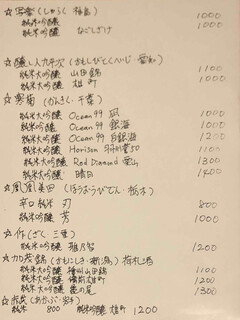 ☆ 寫楽 (しゃらく 福島)
純米吟醸 1000
純米吟醸 なごしざけ 1000
☆ 醸し人九平次 (かもしびとくへいじ 愛知)
純米大吟醸 山田錦 1100
純米大吟醸 雄町 1100
☆ 寒菊 (かんきく・千葉)
純米吟醸 Ocean 99 凪 1000
純米吟醸 Ocean 99 銀海 1000
純米大吟醸 Ocean 99 白銀海 1200
純米大吟醸 Horizon 羽州誉50 1100
純米大吟醸 Red Diamond 愛山 1300
純米大吟醸 晴日 1400
☆ 鳳凰美田 (ほうおうびでん・栃木)
辛口純米 刃 800
純米吟醸 芳 1000
☆ 作 (ざく 三重)
純米吟醸 雅乃智 1200
☆ 加茂錦 (かもにしき・新潟) 荷札酒
純米大吟醸 播州山田錦 1100
純米大吟醸 備前雄町 1200
純米大吟醸 1300
☆ 赤武 (あかぶ・岩手)
純米 800 純米吟醸 雄町 1200